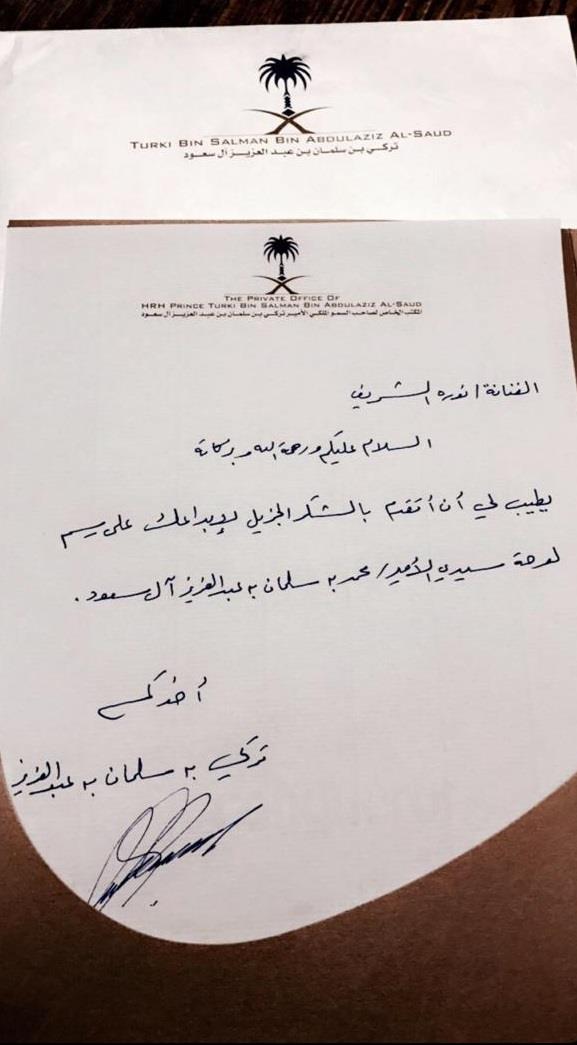 TURKI BIN SALMAN BIN ABDULAZIZ AL-SAUD
تركي بن سلمان بن عبد العزيز آل سعود
THE PRIVATE OFFICE OF
HRH PRINCE TURKI BIN SALMAN BIN ABDULAZIZ AL-SAUD
المكتب الخاص لصاحب السمو الملكي الأمير تركي بن سلمان بن عبد العزيز آل سعود
الفنانة / نوره الشريف
السلام عليكم ورحمة الله وبركاته
يطيب لي أن أتقدم بالشكر الجزيل لإبداعك على رسم
لوحة سيدي الأمير / محمد بن سلمان بن عبدالعزيز آل سعود .
أخوكم
تركي بن سلمان بن عبدالعزيز